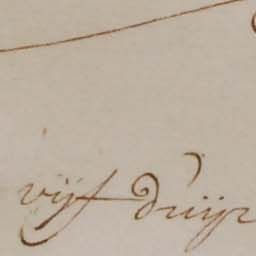 vijf duijz